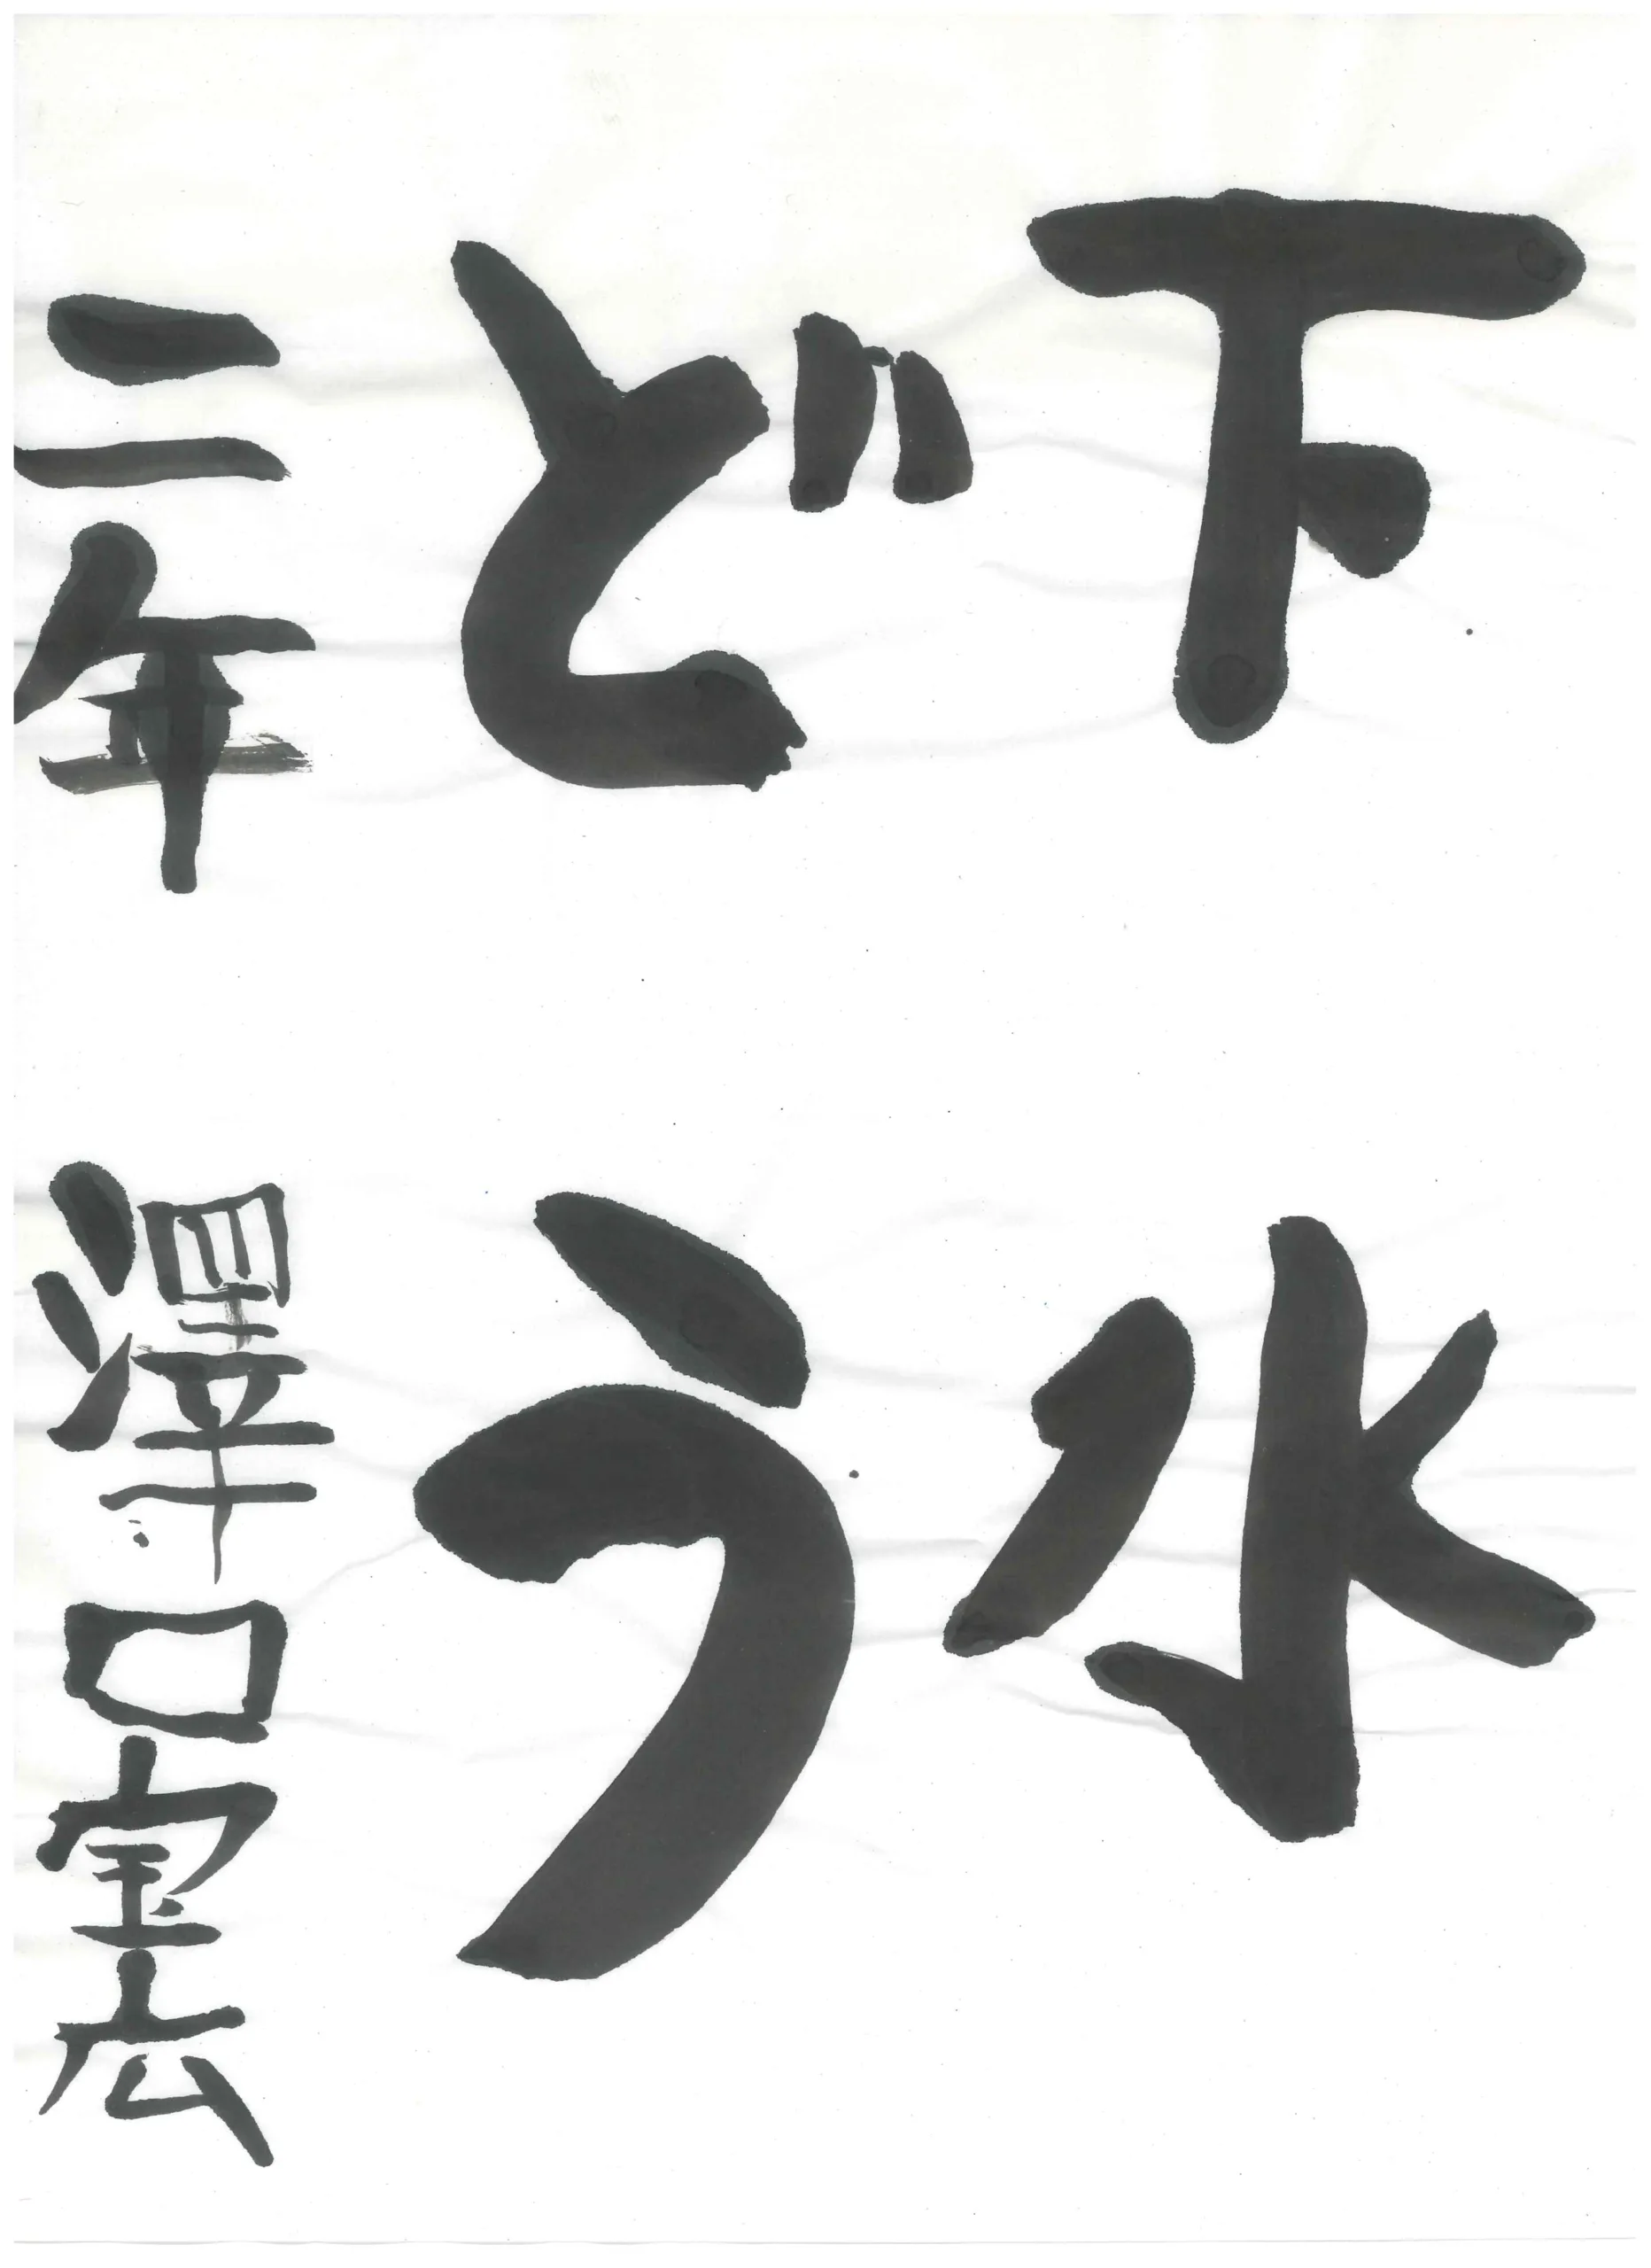 下水
どう
二年 澤口宝広